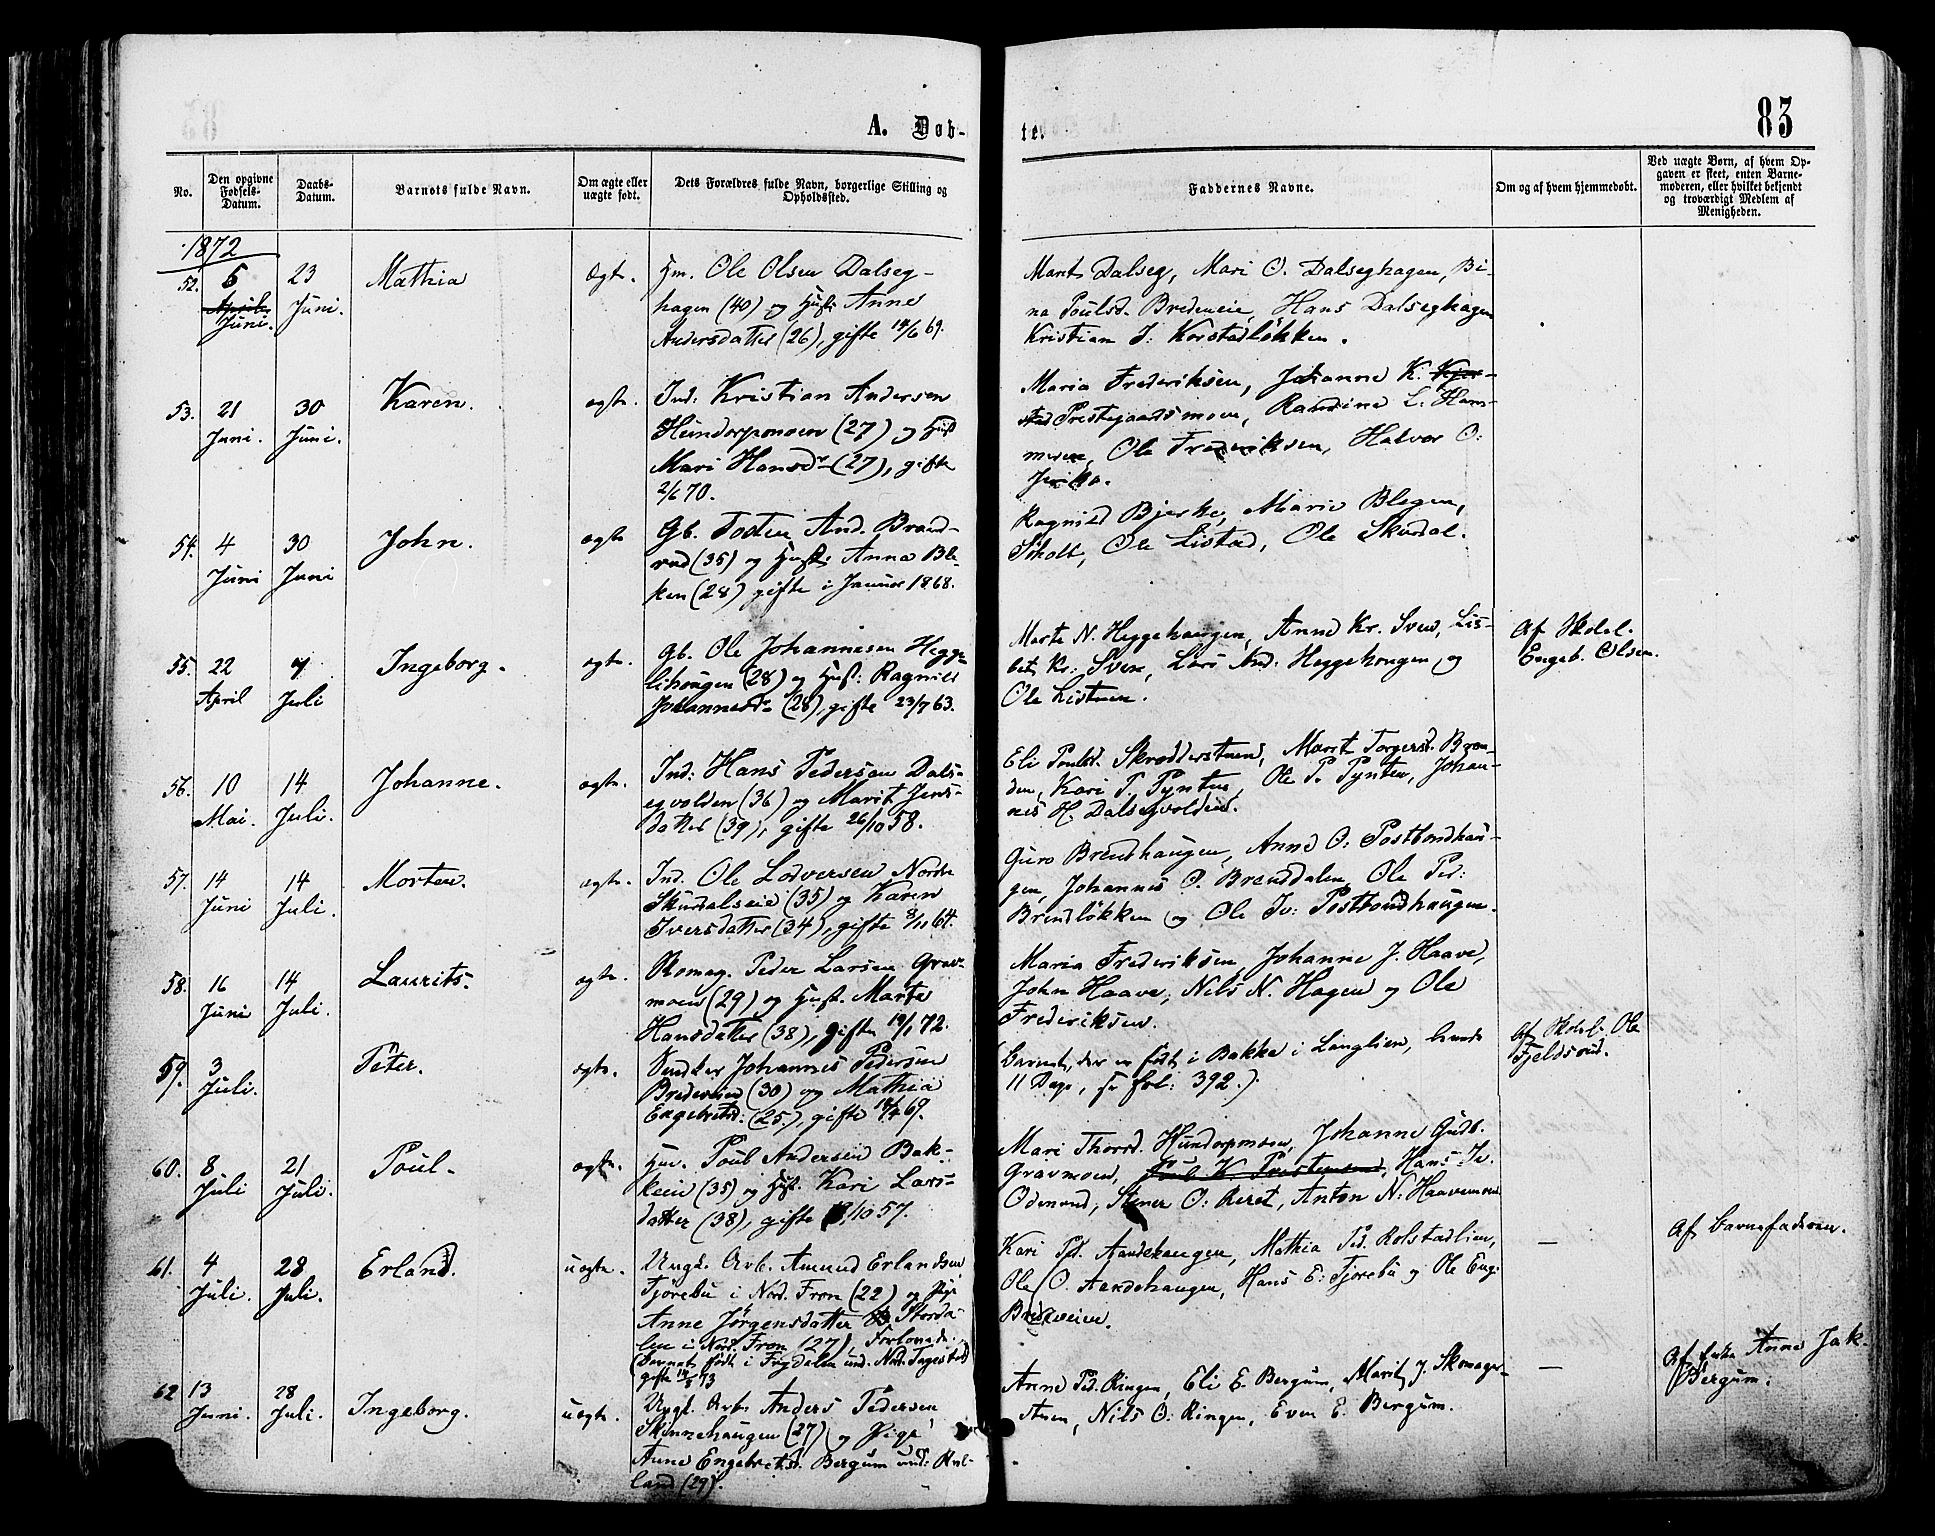 83
A. Døb-
te.
No.
Den opgivne Fødsels-Datum.
Daabs-Datum.
Barnets fulde Navn.
Om ægte eller uægte født.
Dets Forældres fulde Navn, borgerlige Stilling og Opholdssted.
Faddernes Navne.
Om og af hvem hjemmedøbt.
Ved uægte Børn, af hvem Opgaven er skeet, enten Barnemoderen, eller hvilket bekjendt og troværdigt Medlem af Menigheden.
1872
52. 6 April Juni. 23 Juni. Mathia Ægte.
Hm. Ole Olsen Dalseg-
hagen (40) og Hust. Anne
Andersdatter (26), gifte 14/6 69.
Marit Dalseg, Mari O. Dalseghagen, Bi-
na Poulsd. Bredeneie, Hans Dalseghagen
Kristian J: Korstadløkken.
53. 21 Juni. 30 Juni. Karen. ægte.
Ind: Kristian Andersen
Hundorpmoen (27) og Hust
Mari Hansdr (27), gifte
2/6 70.
Maria Frederiksen, Johanne K.
Prestegaardsmoen, L. Hans-
moen, Ole Frederiksen, Halvor O:
54. 4 Juni 30 Juni John. ægte
Gb. Tosten And. Brand-
rud (35) og Hust. Anna Ble-
ken (28) gifte i Januar 1868.
Ragnild Bjerke, Marie Blegen,
Ole Listad, Ole Skurdal.
55. 22 April 7 Juli Ingeborg. ægte.
Gb. Ole Johannesen Hegge-
lihougen (28) og Hust: Ragnild
Johannesdr (28), gifte 23/7 63.
Marte N. Heggehaugen, Anne Kr. Sven, Lis-
bet Kr: Sven, Lars And. Heggehougen og
Ole Listuen.
Af Skolel.
Engeb. Olsen.
56. 10 Mai. 14 Juli. Johanne. ægte.
Ind: Hans Pedersen Dals-
egvolden (36) og Marit Jens-
datter (39), gifte 26/10 58.
Eli Poulsd. Skrædderstuen, Marit Torgersd. Bran-
den, Kari P. Pynten, Ole P. Pynten, Johan-
nes H. Dalsegvolden.
57. 14 Juni 14 Juli. Morten. ægte.
Ind. Ole Lodversen Nordre
Skurdalseie (35) og Karen
Iversdatter (34), gifte 8/11 64.
Guro Brendhaugen, Anne O: Postbondhau-
gen, Johannes O. Brenddalen, Ole Ped:
Brendløkken og Ole Iv: Postbondhaugen.
58. 16 Juni 14 Juli. Laurits. ægte.
Skomag. Peder Larsen Grav-
moen (29) og Hust. Marte
Hansdatter (38), gifte 19/1 72.
Maria Frederiksen, Johanne J. Haave,
John Haave, Nils N. Hagen og Ole
Frederiksen.
59. 3 Juli. Peter. ægte.
Johannes Pedersen
Bredeveien (30) og Mathia
Engebretsd: (25), gifte 18/4 69.
(Barnet, der er født i Bakke i Langlien, levede
11 Dage, se fol: 392.).
Af Skolel. Ole
Fjeldsrud.
60. 8 Juli 21 Juli. Poul. ægte.
Hm. Poul Andersen Bak-
keeie (35) og Hust. Kari Lars-
datter (38), gifte /10 57.
Mari Thorsd. Hundorpmoen, Johanne Gudb.
Gravmoen, Poul K. , Hans Iv.
Odenrud, Stener O: Reret, Anton N: Haavemoen
61. 4 Juli. 28 Juli. Erland. uægte.
Ungk. Arb. Amund Erlandsen
Tjørebu i Nord. Fron (22) og Pige
Anne Jørgensdatter Storda-
len i Nord. Fron (27), Forlovede.
(Barnet født i Frydalen und. Nord. Tagestad)
gifte 14/8 73
Kari Ped. Aandehaugen, Mathia Ped. Rolstadlien,
Ole O. Aandehaugen, Hans E: Tjorebu og Ole Eng.
Bredeveien.
—
Af Barnefaderen.
62 13 Juni. 28 Juli. Ingeborg. uægte.
Ungk. Arb. Anders Pedersen
Skinnehaugen (27) og Pige
Anne Engebretsd. Bergum und: Rol-
land (29).
Anne Ped. Ringen, Eli E. Bergum, Marit J. Skomager-
stuen, Nils O: Ringen, Even E. Bergum.
—
Af Anne Jak.
Bergum.